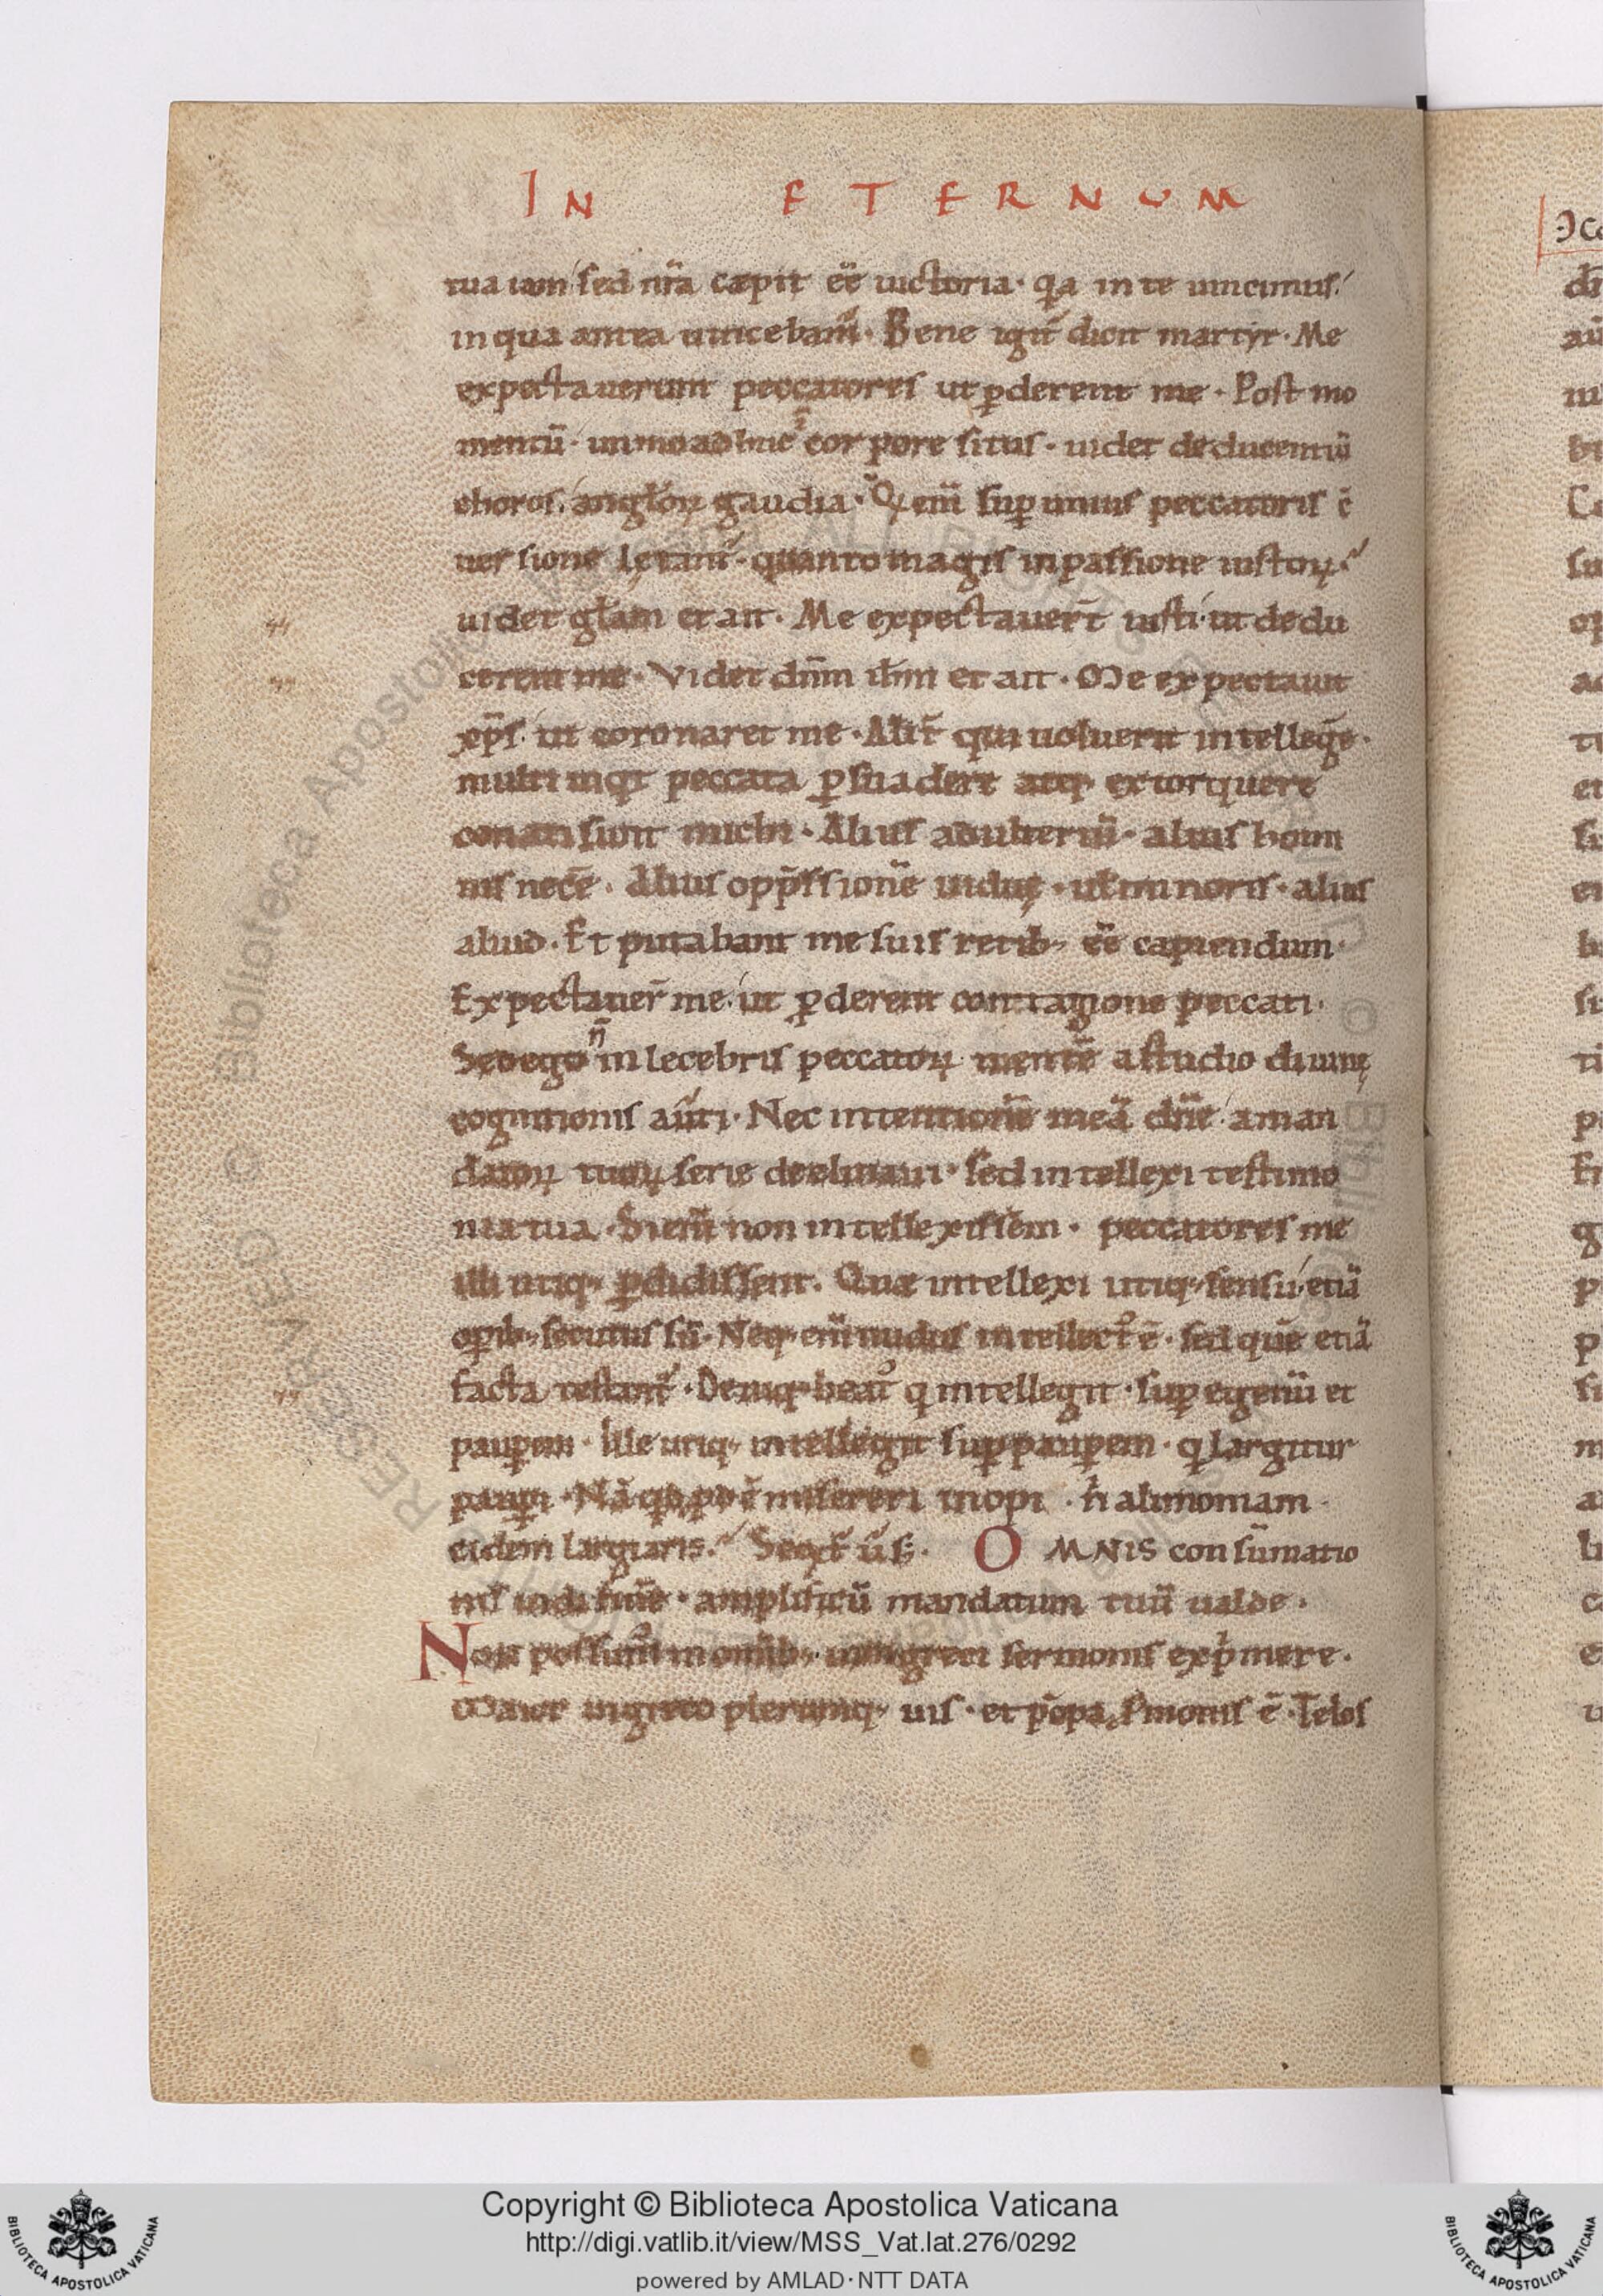 IN ETERNUM
tua iam sed nr̄a cæpit eē uictoria · qa in te uincimus·
in qua antea uincebam̄ · Bene igit̄ dicit martyr · Me
expectauerunt peccatores ut ꝑderent me · Post mo
mentū · immo adhuc ī corpore situs · uidet deducentiū
choros· angłoꝝ gaudia · Q enī suꝑ unius peccatoris c̄
uersione lętant̄ · quanto magis in passione iustoꝝ·
uidet głam et ait · Me expectauer̄t iusti· ut dedu
cerent me · Videt dn̄m ih̄m et ait · Me expectauit
xp̄s· ut coronaret me · Alit̄ qui uoluerit intelleḡe ·
multi inqt peccata ꝑsuadere atq; extorquere
conati sunt michi · Alius adulteriū · alius homi
nis necē · Alius opp̄ssionē uiduę · uł minoris · alius
aliud · Et putabant me suis retib; eē capiendum ·
Expectauer̄ me· ut ꝑderent contagione peccati ·
Sed ego n̄ inlecebris peccatoꝝ mentē a studio diuinę
cognitionis au̅ti · Nec intentionē meā dn̄e· a man
datoꝝ tuoꝝ serie declinaui · sed intellexi testimo
nia tua · Si enī non intellexissem · peccatores me
illi utiq; ꝑdidissent · Quæ intellexi utiq; sensu· etiā
oꝑib; secutus sū · Neq; enī nudus intellect᾽ ē · sed quē etiā
facta testant̄ · Deniq; beat᾽ q intellegit · suꝑ egenū et
pauꝑem · Ille utiq; intellegit suꝑ pauꝑem · q largitur
pauꝑi · Nā qō pot̄ ē misereri inopi · n̄ alimoniam
eidem largiaris · Seqt̄ ūs · OMNIS consūmatio
nis uidi finē · amplificū mandatum tuū ualde ·
Non possum᾽ in omīb; uim greci sermonis exp̄mere ·
Maior in greco plerumq; uis · et pōpa s̄monis ē · Telos
Copyright © Biblioteca Apostolica Vaticana
http://digi.vatlib.it/view/MSS_Vat.lat.276/0292
powered by AMLAD·NTT DATA
BIBLIOTECA APOSTOLICA VATICANA
BIBLIOTECA APOSTOLICA VATICANA